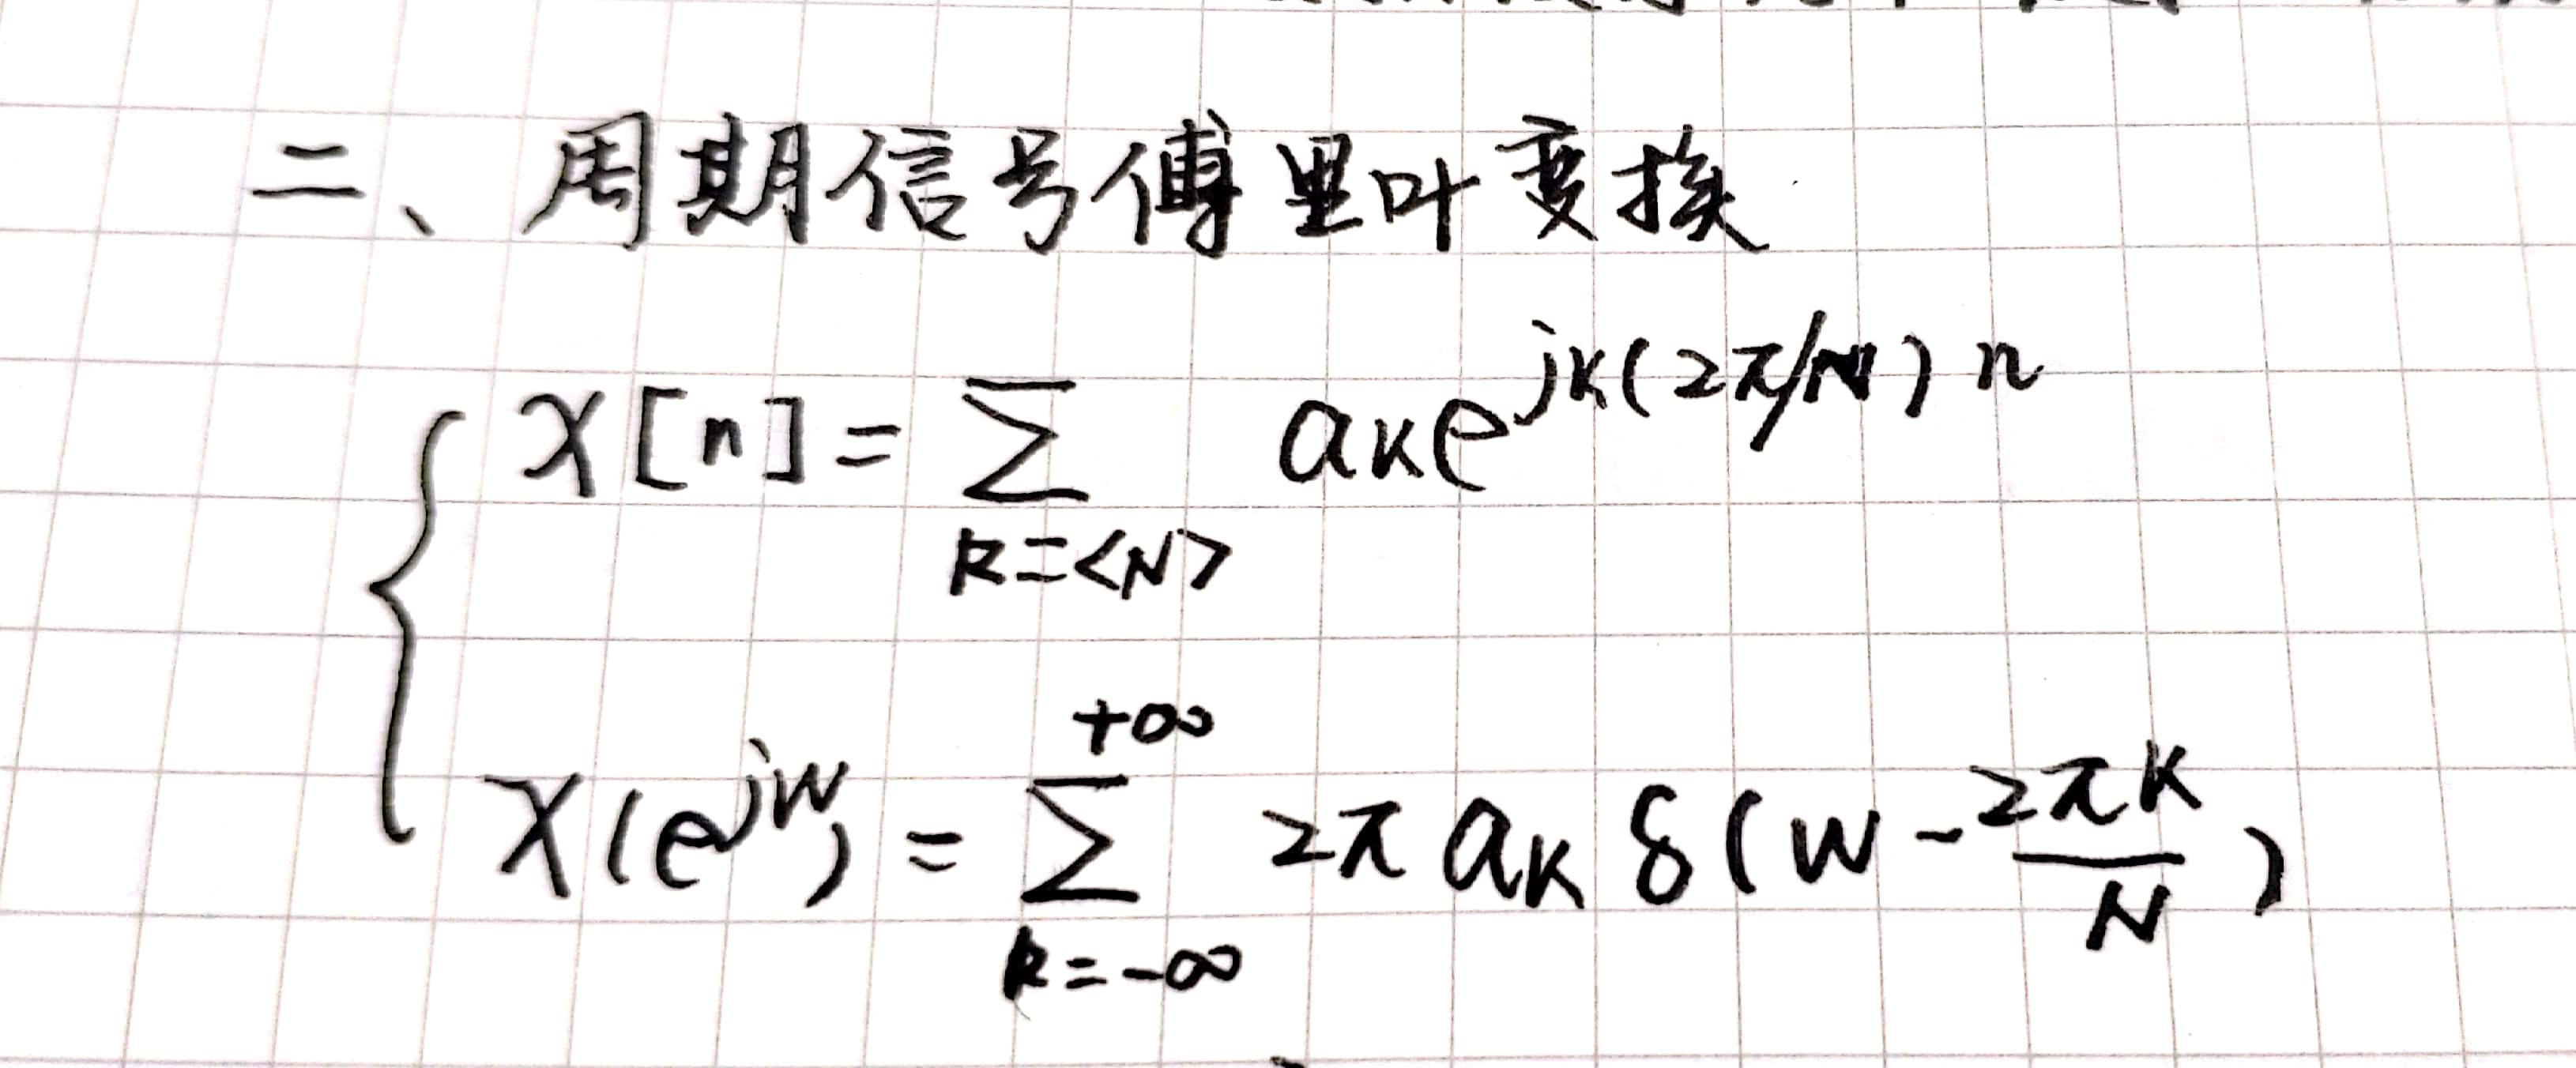 二、周期信号傅里叶变换
x[n] = \sum_{k=<N>} a_k e^{jk(2π/N)n}
X(e^{jw}) = \sum_{k=-∞}^{+∞} 2π a_k δ(w - \frac{2πk}{N})